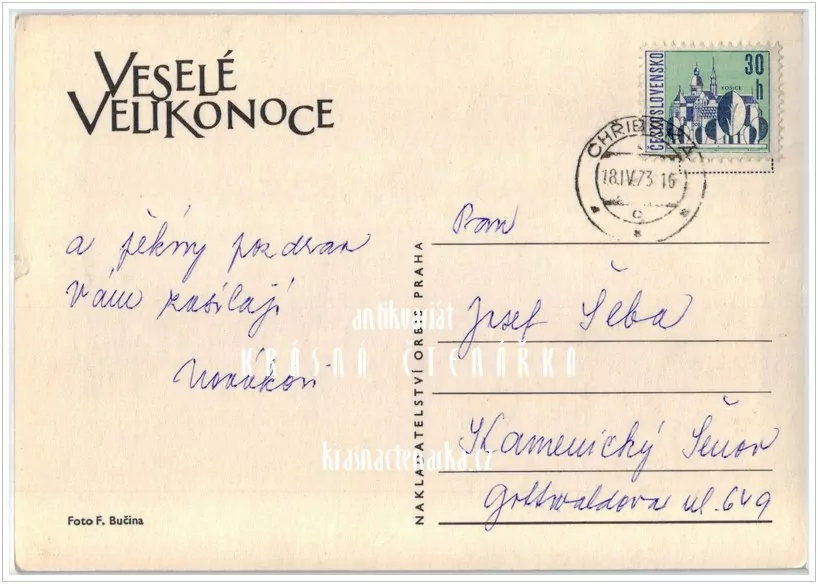 VESELÉ
VELIKONOCE
a pěkný pozdrav
Vám zasílají
Novákovi
Foto F. Bučina
NAKLADATELSTVÍ ORBIS PRAHA
ČESKOSLOVENSKO
30 h
KOŠICE
18.IV.73-16
c
Pan
Josef Šeba
Kamenický Šenov
Gottwaldova ul. 649
antikvariát
KRÁSNÁ ČTENÁŘKA
krasnactenarka.cz